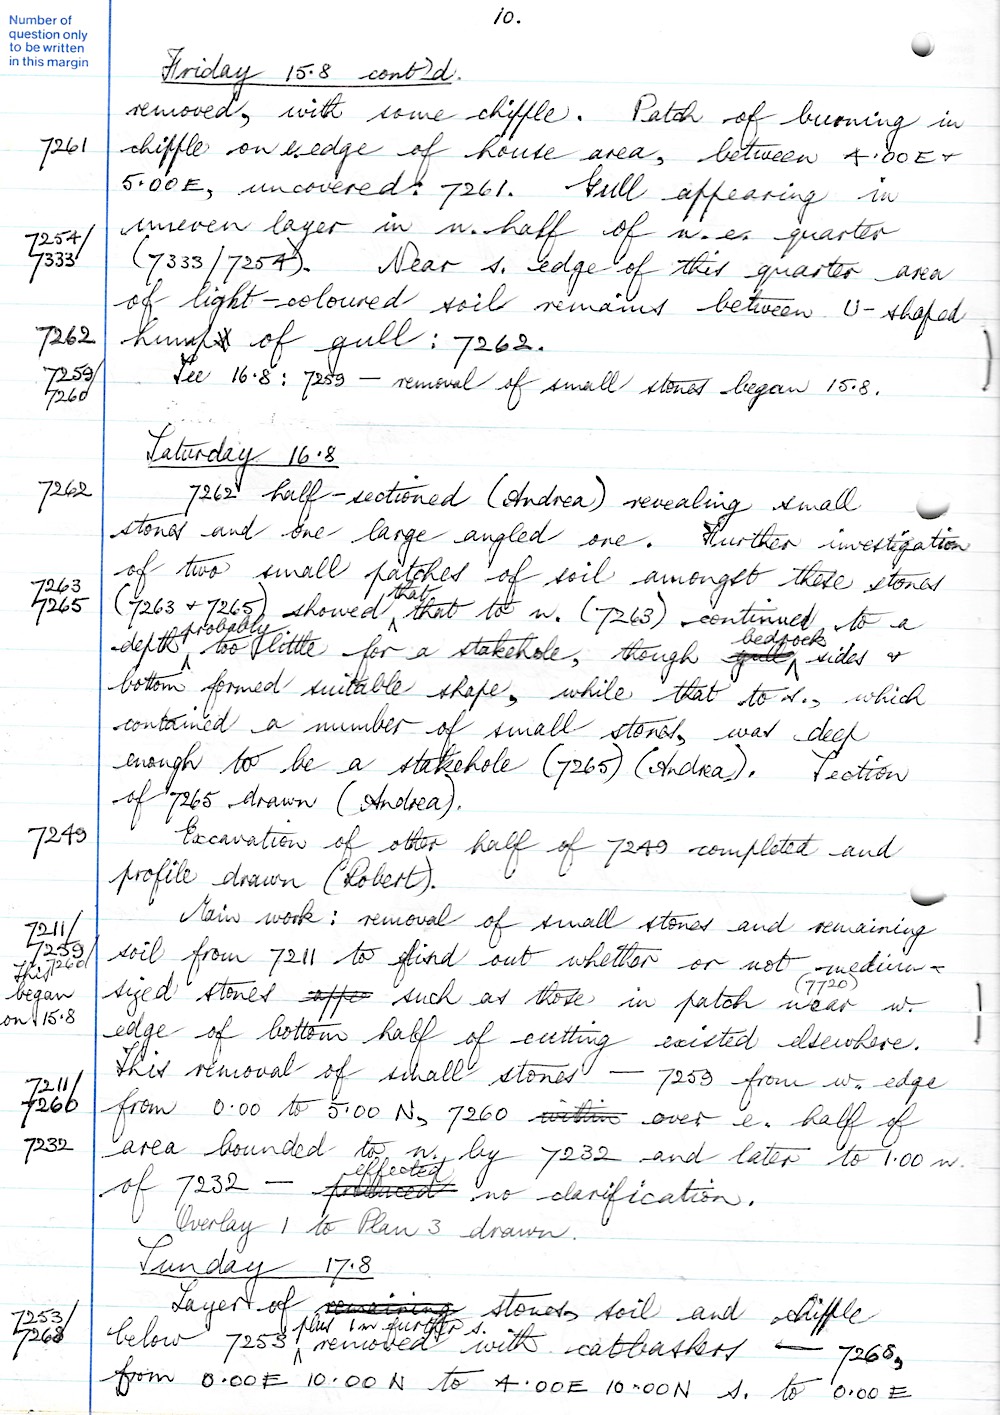 10.
Number of
question only
to be written
in this margin
Friday 15·8 cont'd.
removed, with some chiffle. Patch of burning in
7261 chiffle on e. edge of house area, between 4·00E +
5·00E, uncovered: 7261. Gull appearing in
uneven layer in n. half of n.e. quarter
7254/
7333 (7333/7254). Near s. edge of this quarter area
of light-coloured soil remains between U-shaped
7262 hump of gull: 7262.
7259/
7260 See 16·8: 7259 — removal of small stones began 15·8.
Saturday 16·8
7262 7262 half-sectioned (Andrea) revealing small
stones and one large angled one. Further investigation
of two small patches of soil amongst these stones
7263
7265 (7263 + 7265) showed that that to n. (7263) continued to a
depth probably too little for a stakehole, though gull bedrock sides &
bottom formed suitable shape, while that to s., which
contained a number of small stones, was deep
enough to be a stakehole (7265) (Andrea). Section
of 7265 drawn (Andrea).
7249 Excavation of other half of 7249 completed and
profile drawn (Robert).
Main work: removal of small stones and remaining
7211/
7259/
7260 soil from 7211 to find out whether or not medium-
This
began
on 15·8 sized stones appe such as those in patch (7720) near w.
edge of bottom half of cutting existed elsewhere.
This removal of small stones — 7259 from w. edge
7211/
7260 from 0·00 to 5·00 N, 7260 within over e. half of
7232 area bounded to n. by 7232 and later to 1·00 n.
of 7232 — produced effected no clarification.
Overlay 1 to Plan 3 drawn.
Sunday 17·8
Layer of remaining stones, soil and chiffle
7253/
7268 below 7253 plus 1m further s. removed with catbashers — 7268,
from 0·00E 10·00N to 4·00E 10·00N s. to 0·00E